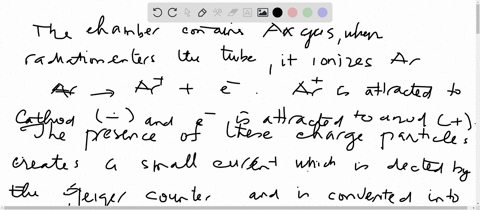 The chamber contains Ar gas, when
radiation enters the tube, it ionizes Ar
Ar → Ar⁺ + e⁻. Ar⁺ is attracted to
Cathod (-) and e⁻ is attracted to anod (+).
The presence of these charge particles
creates a small current which is dected by
the Geiger counter and is converted into